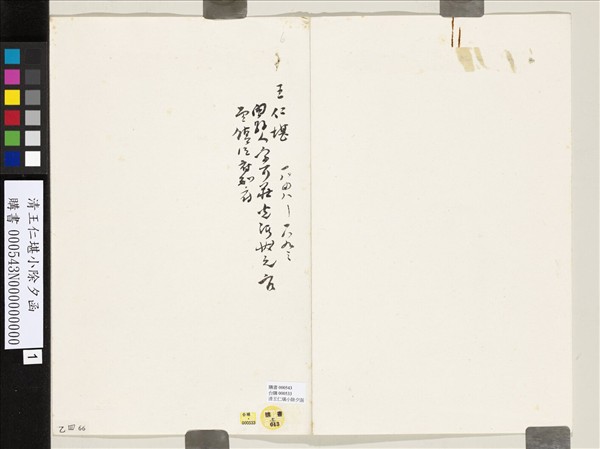 王仁堪 一八四八—一八九三
閩縣人字可莊光緒狀元官
至鎮江府知府
清王仁堪小除夕函
購書 000543N000000000
1
購書 000543
台購 000533
清王仁堪小除夕函
000533
購書
643
乙 四 66